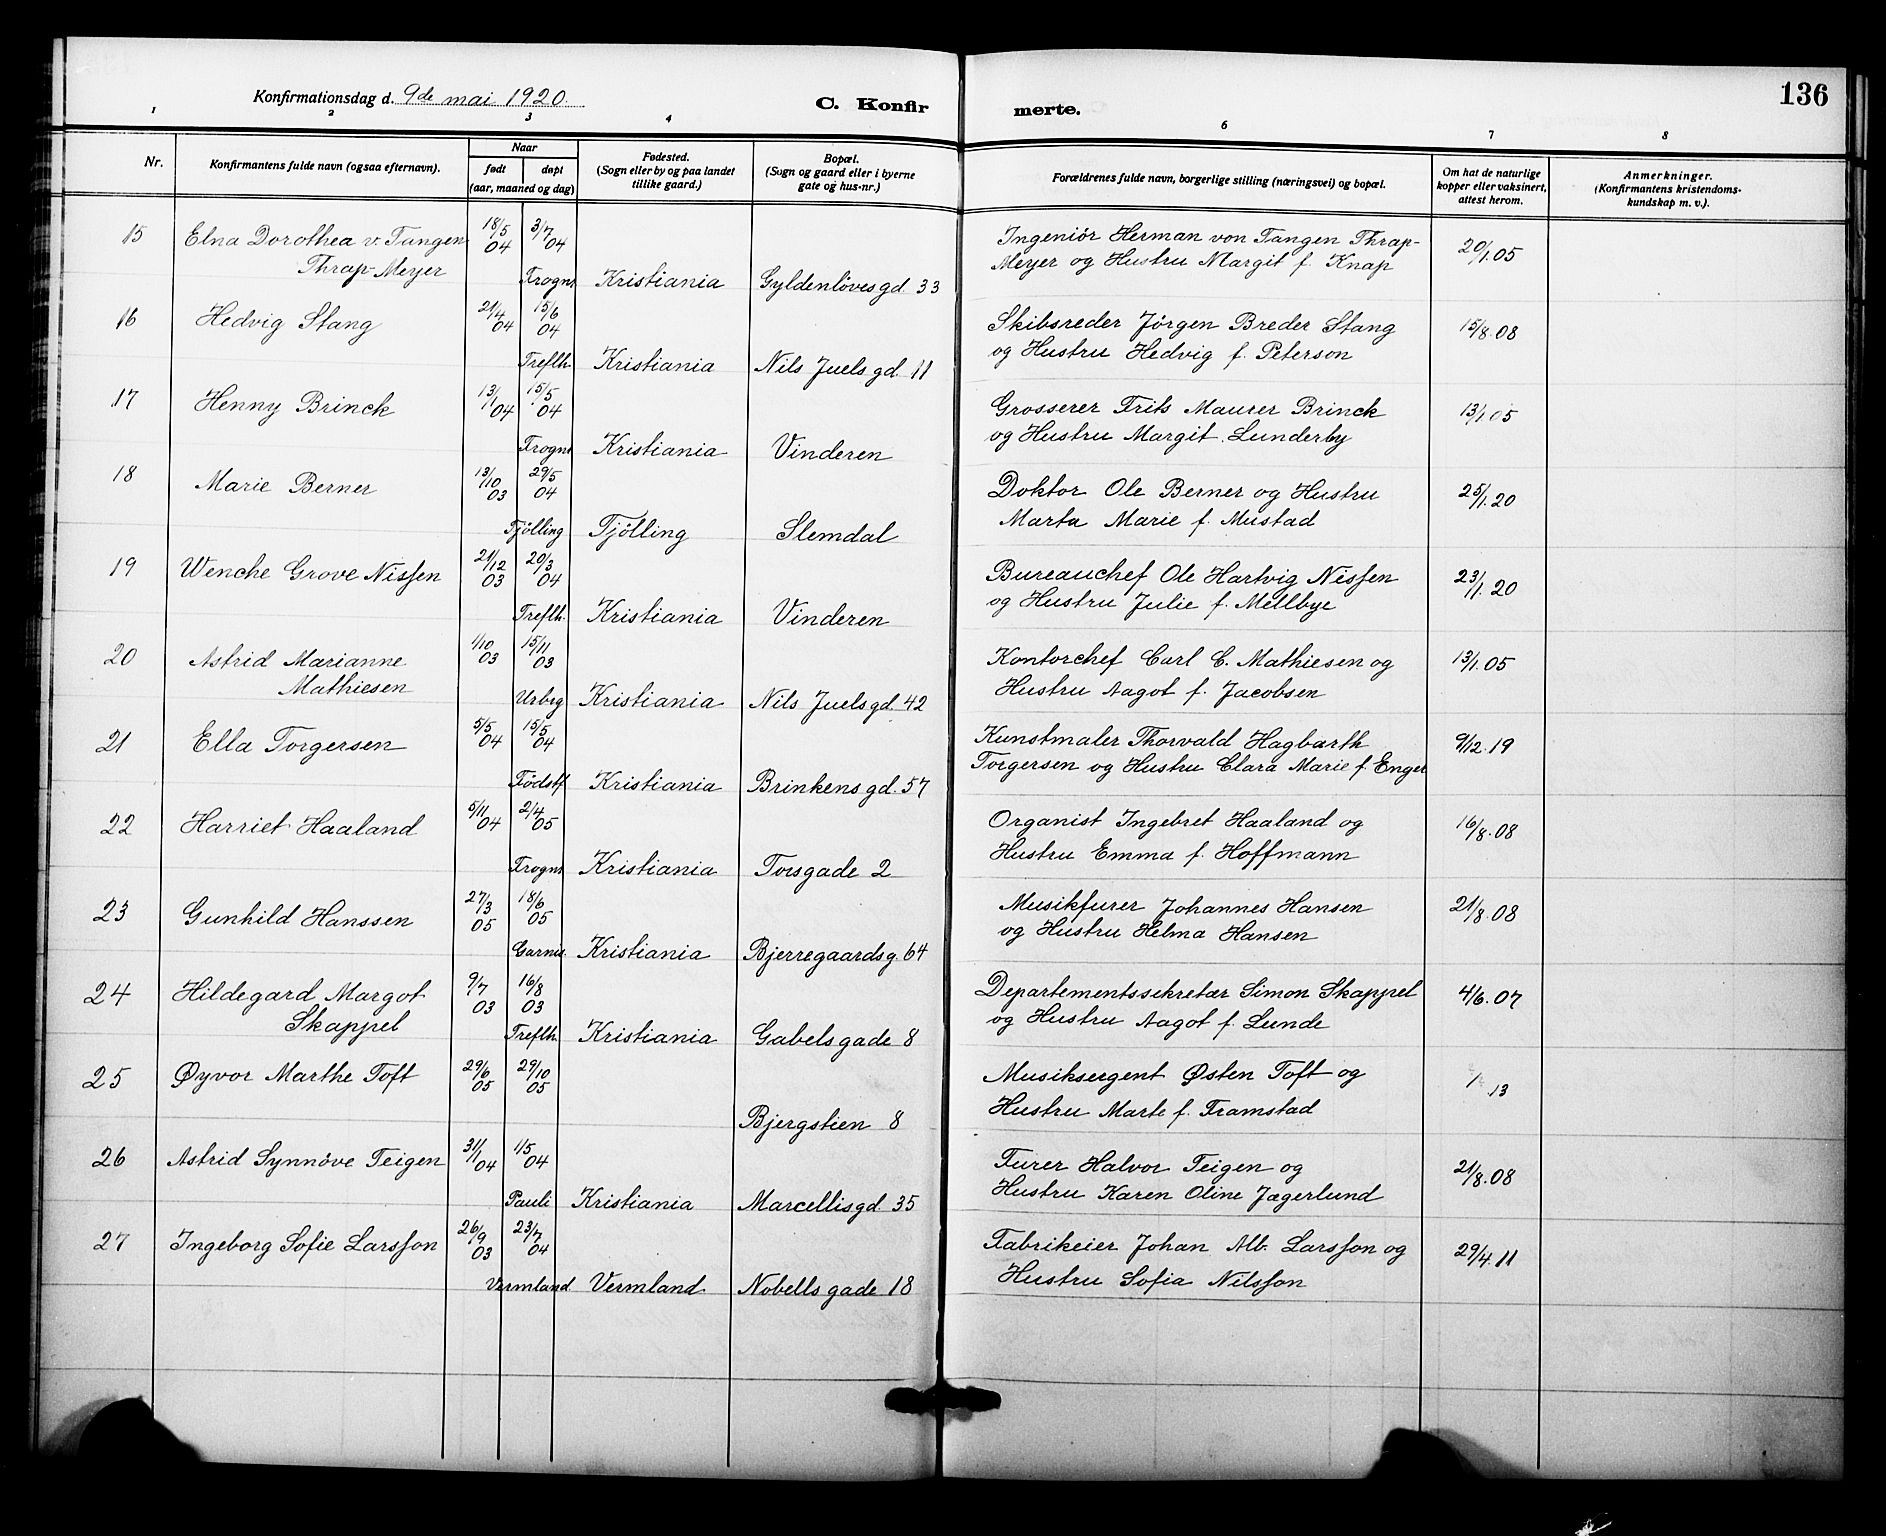 136
Konfirmationsdag d. 9de mai 1920.
C. Konfir
merte.
1 2 3 4 6 7 8
Nr.
Konfirmantens fulde navn (ogsaa efternavn).
Naar
født døpt
(aar, maaned og dag)
Fødested.
(Sogn eller by og paa landet
tillike gaard.)
Bopæl.
(Sogn og gaard eller i byerne
gate og hus-nr.)
Forældrenes fulde navn, borgerlige stilling (næringsvei) og bopæl.
Om hat de naturlige
kopper eller vaksinert,
attest herom.
Anmerkninger.
(Konfirmantens kristendoms-
kundskap m. v.).
15 Elna Dorothea v. Tangen 18/5 04 3/7 04 Ingeniör Herman von Tangen Thrap- 20/1.05
Thrap-Meyer Frogns Kristiania Gyldenlövesgd. 33 Meyer og Hustru Margit f. Knap
16 Hedvig Stang 21/4 04 15/6 04 Skibsreder Jörgen Breder Stang 15/8.08
Treflh. Kristiania Nils Juels gd. 11 og Hustru Hedvig f. Peterson
17 Henny Brinck 13/1 04 15/5 04 Grosserer Frits Maurer Brinck 13/1 05
Frogns Kristiania Vinderen og Hustru Margit Lunderby
18 Marie Berner 13/10 03 29/5 04 Doktor Ole Berner og Hustru 25/1.20
Tjölling Tjölling Slemdal Marta Marie f. Mustad
19 Wenche Grove Nissen 21/12 03 20/3 04 Bureauchef Ole Hartvig Nissen 23/1.20
Treflh. Kristiania Vinderen og Hustru Julie f. Mellbye
20 Astrid Marianne 1/10 03 15/11 03 Kontorchef Carl C. Mathiesen og 13/1.05
Mathiesen Urbyg Kristiania Nils Juels gd. 42 Hustru Aagot f. Jacobsen
21 Ella Torgersen 5/5 04 15/5 04 Kunstmaler Thorvald Hagbarth 9/12.19
Födstf Kristiania Brinkens gd. 57 Torgersen og Hustru Clara Marie f. Enger
22 Harriet Haaland 5/11 04 2/4 05 Organist Ingebret Haaland og 16/8.08
Frogns Kristiania Torsgade 2 Hustru Emma f. Hoffmann
23 Gunhild Hanssen 27/3 05 18/6 05 Musikfurer Johannes Hansen 21/8.08
Garnis. Kristiania Bjerregaardsg. 64 og Hustru Helma Hansen
24 Hildegard Margot 9/7 03 16/8 03 Departementssekretær Simon Skappel 4/6.07
Skappel Treflh. Kristiania Gabels gade 8 og Hustru Aagot f. Lunde
25 Øyvor Marthe Toft 29/6 05 29/10 05 Musiksergent Østen Toft og / 13
Bjergstien 8 Hustru Marte f. Framstad
26 Astrid Synnöve Teigen 31/1 04 1/5 04 Furer Halvor Teigen og 21/8.08
Pauli Kristiania Marcellisgd. 35 Hustru Karen Oline Jægerlund
27 Ingeborg Sofie Larsson 26/9 03 23/7 04 Fabrikeier Johan Alb. Larsson og 29/4.11
Vermland Vermland Nobells gade 18 Hustru Sofia Nilsson